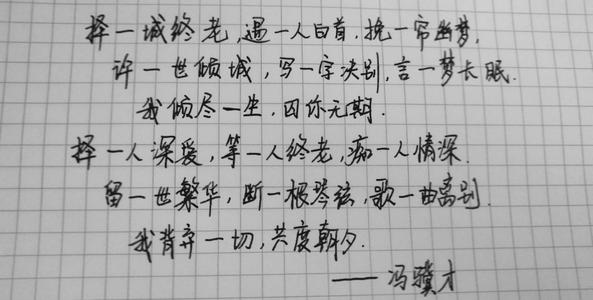 择一城终老,遇一人白首.挽一帘幽梦,
许一世倾城,写一字决别,言一梦长眠.
我倾尽一生,囚你无期.
择一人深爱,等一人终老,痴一人情深.
留一世繁华,断一根琴弦,歌一曲离别.
我背弃一切,共度朝夕.
——冯骥才